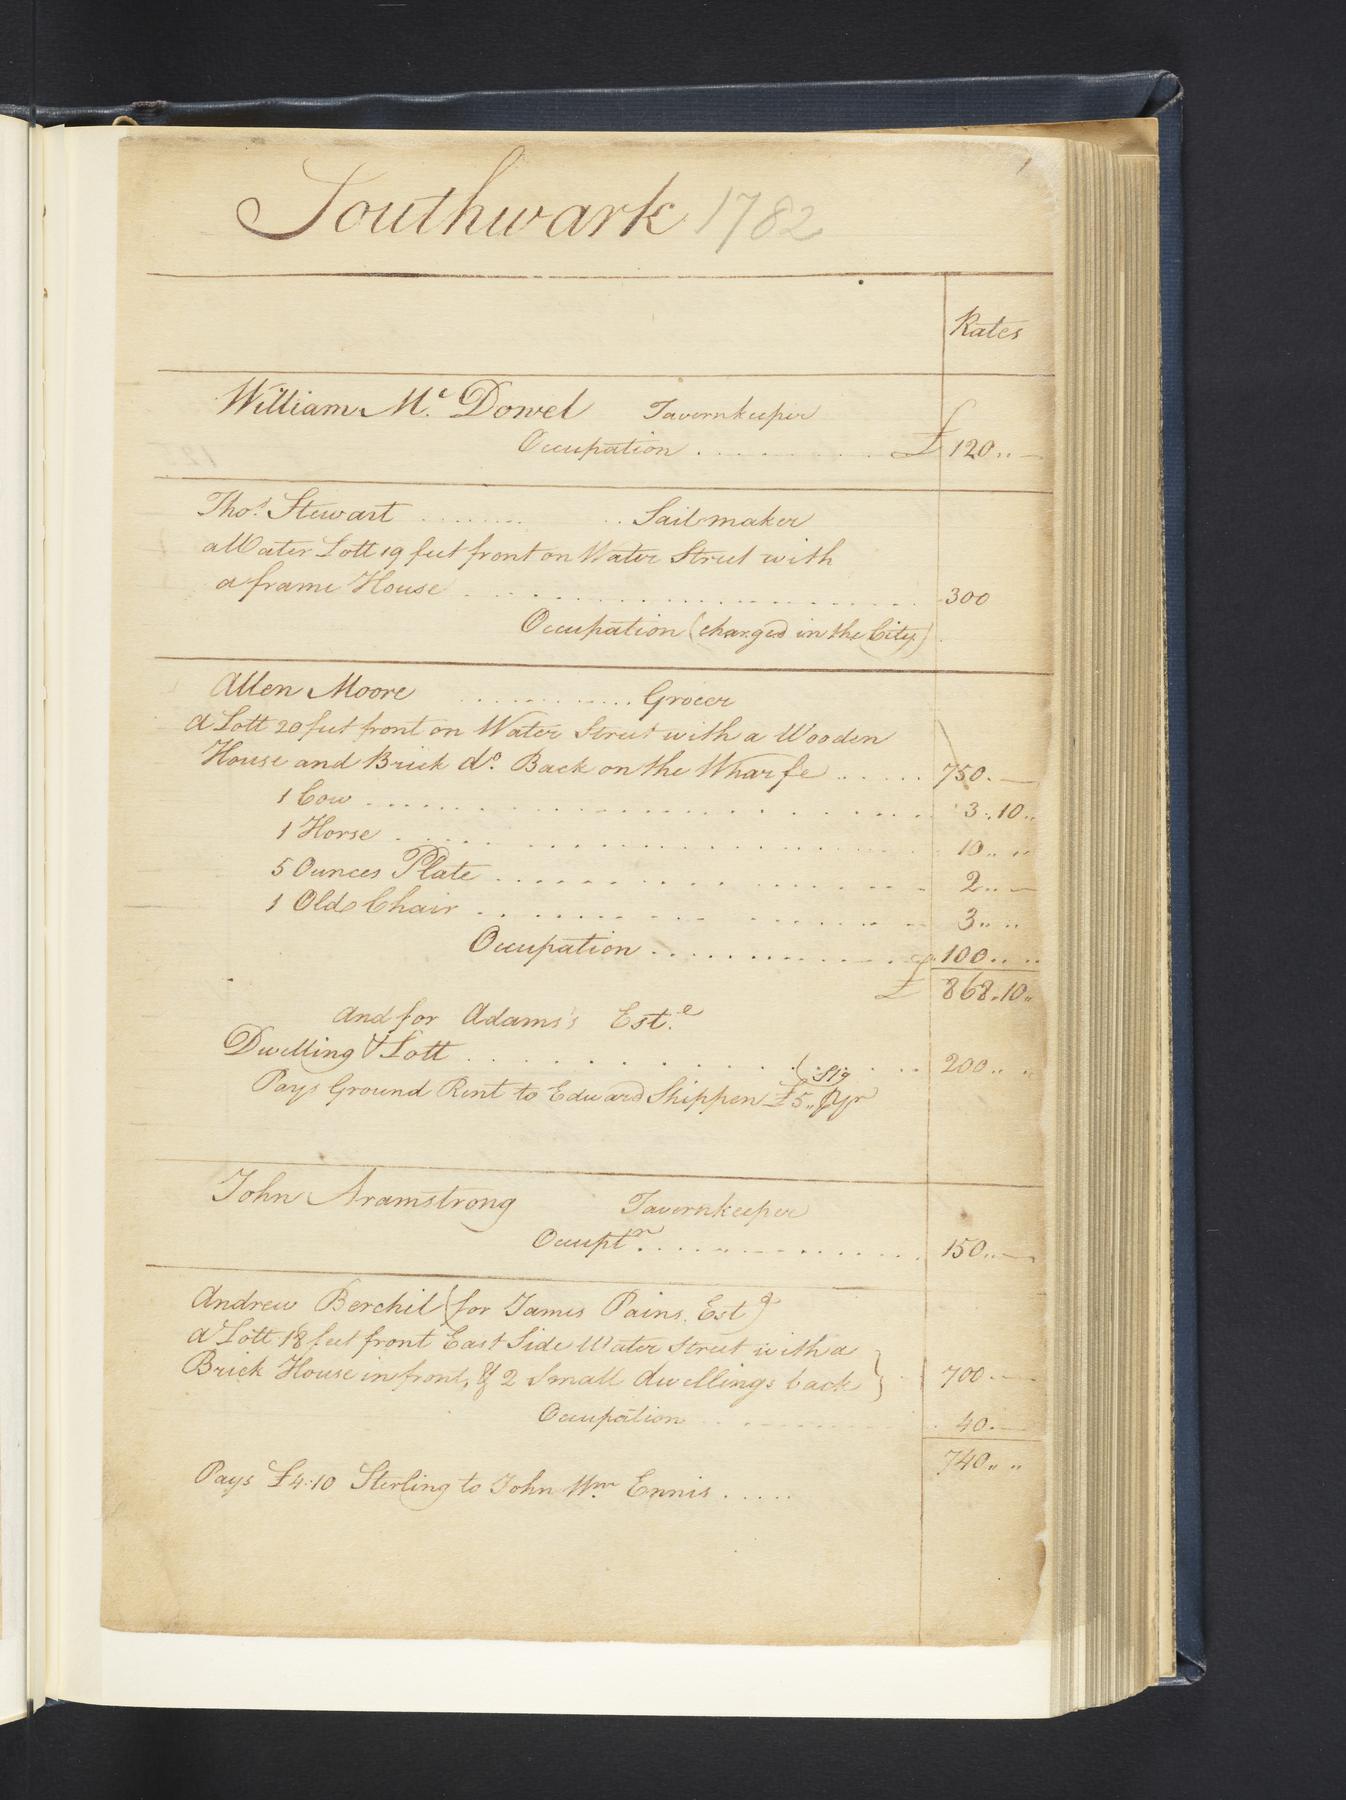 1
Southwark 1782
Rates
William Mc. Dowel Tavernkeeper
Occupation . . . . . . . . £ 120 „ —
Thos. Stewart . . . . . . . . Sailmaker
a Water Lott 19 feet front on Water Street with
a frame House . . . . . . . . 300
Occupation (charged in the City)
Allen Moore . . . . . . . . Grocer
a Lott 20 feet front on Water Street with a Wooden
House and Brick do. Back on the Wharfe . . . . . 750. —
1 Cow . . . . . . . . 3 „ 10 „
1 Horse . . . . . . . . 10 „ „
5 Ounces Plate . . . . . . . . 2 „ —
1 Old Chair . . . . . . . . 3 „ „
Occupation . . . . . . . . 100 „ „
£ 868 „ 10 „
and for Adams's Este.
Dwelling & Lott . . . . . . . . 200 „ „
Pays Ground Rent to Edward Shippen £5 „ Stg p Yr
John Aramstrong Tavernkeeper
Occuptn. . . . . . . . . 150 „ —
Andrew Berchil (for James Pains Este)
a Lott 18 feet front East Side Water Street with a
Brick House in front, & 2 Small dwellings back } 700 . —
Occupation . . . . . . . . 40 . —
740 „ „
Pays £4:10 Sterling to John Wm. Ennis . . . . .